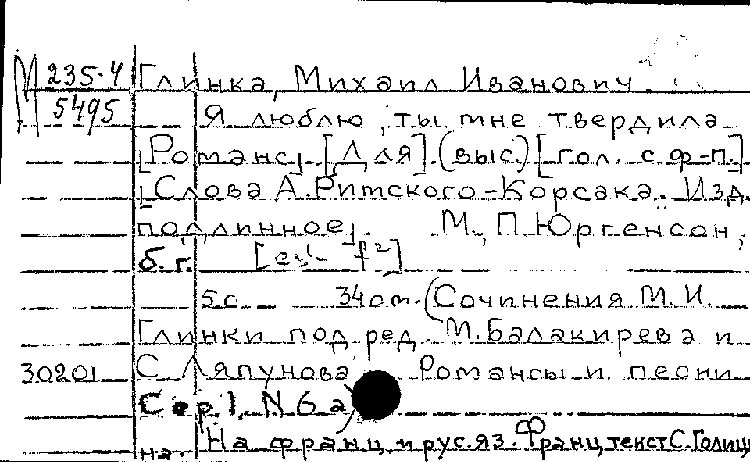 М 235-4 Глинка, Михаил Иванович.
5495 Я люблю, ты мне твердила
Романс. [Для] (выс.) [гол. с ф-п.]
Слова А. Римского-Корсака. Изд.
подлинное. М., П. Юргенсон,
б. г. [es¹- f²]
5 с. 34 см. (Сочинения М. И.
Глинки под ред. М. Балакирева и
30201 С. Ляпунова. Романсы и песни
Сер. 1, N 6 а)
На франц. и рус. яз. Франц. текст С. Голиц
на